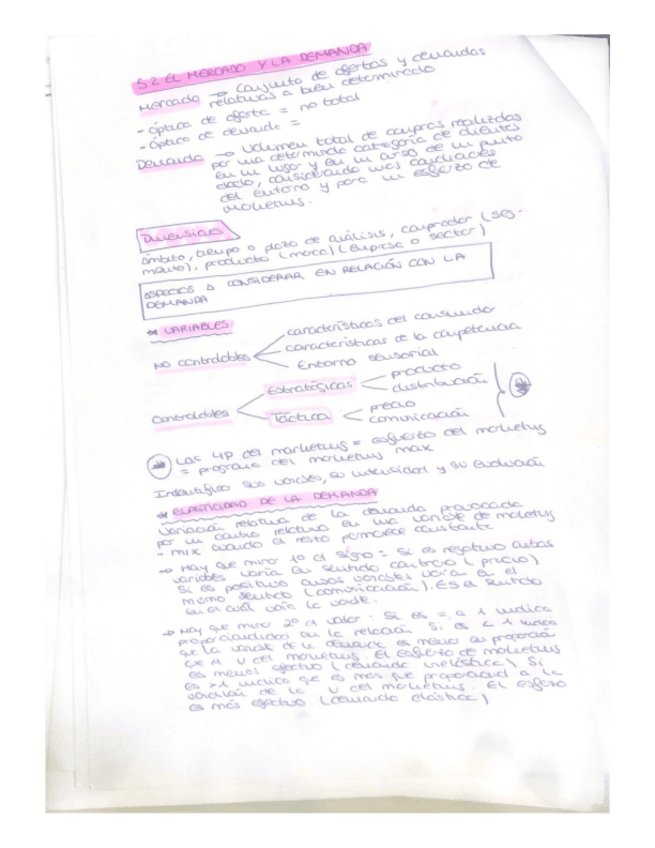 5.2. EL MERCADO Y LA DEMANDA
Mercado → Conjunto de ofertas y demandas
relativas a bien determinado
- óptica de oferta = no total
- óptica de demanda =
Demanda → Volumen total de compras realizadas
por una determinada categoría de clientes
en un lugar y en un curso de un punto
dado, considerando unas condiciones
del entorno y para un esfuerzo de
marketing.
Dimensiones
ámbito, tiempo o plazo de análisis, comprador (seg-
mento), producto (marca) (empresa o sector)
ASPECTOS A CONSIDERAR EN RELACIÓN CON LA
DEMANDA
* VARIABLES
No controlables
características del consumidor
características de la competencia
Entorno sensorial
Controlables
Estratégicas
producto
distribución
Táctica
precio
comunicación
Las 4P del marketing = esfuerzo del marketing
= programa del marketing max
Indentifica sus variables, su intensidad y su evolución
* ELASTICIDAD DE LA DEMANDA
Variación relativa de la demanda provocada
por un cambio relativo en una variable de marketing
- mix cuando el resto permanece constante
→ Hay que mirar 1º el signo = Si es negativo ambas
variables varía en sentido contrario (precio)
Si es positivo ambas variables varían en el
mismo sentido (comunicación). Es el sentido
en el cual varía la variable.
→ Hay que mirar 2º el valor: Si es = a 1 indica
proporcionalidad en la relación. Si es < 1 indica
que la variable de la demanda es menor en proporción
que el V del marketing. El esfuerzo de marketing
es menos efectivo (demanda inelástica) Si
es >1 indica que es más que proporcional a la
variación de la V del marketing. El esfuerzo
es más efectivo. (demanda elástica)